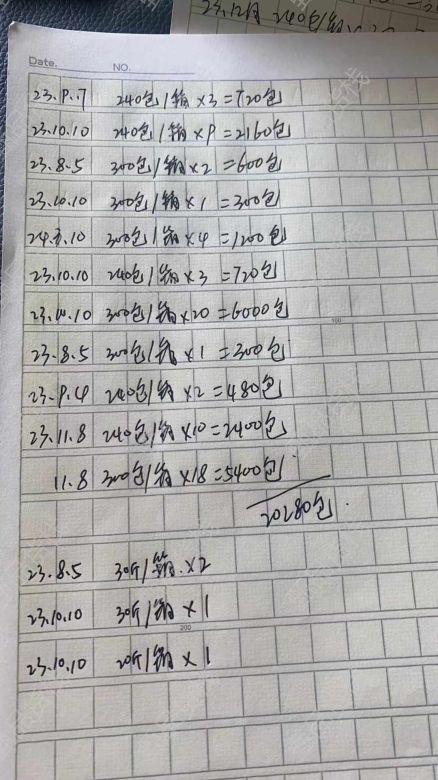 23.12月 240包/箱
Date. NO.
23.9.7 240包/箱×3=720包
23.10.10 240包/箱×9=2160包
23.8.5 300包/箱×2=600包
23.10.10 300包/箱×1=300包
24.3.10 300包/箱×4=1200包
23.10.10 240包/箱×3=720包
23.10.10 300包/箱×20=6000包
100
23.8.5 300包/箱×1=300包
23.9.4 240包/箱×2=480包
23.11.8 240包/箱×10=2400包
11.8 300包/箱×18=5400包
20280包.
23.8.5 30斤/箱.×2
23.10.10 30斤/箱×1
200
23.10.10 20斤/箱×1